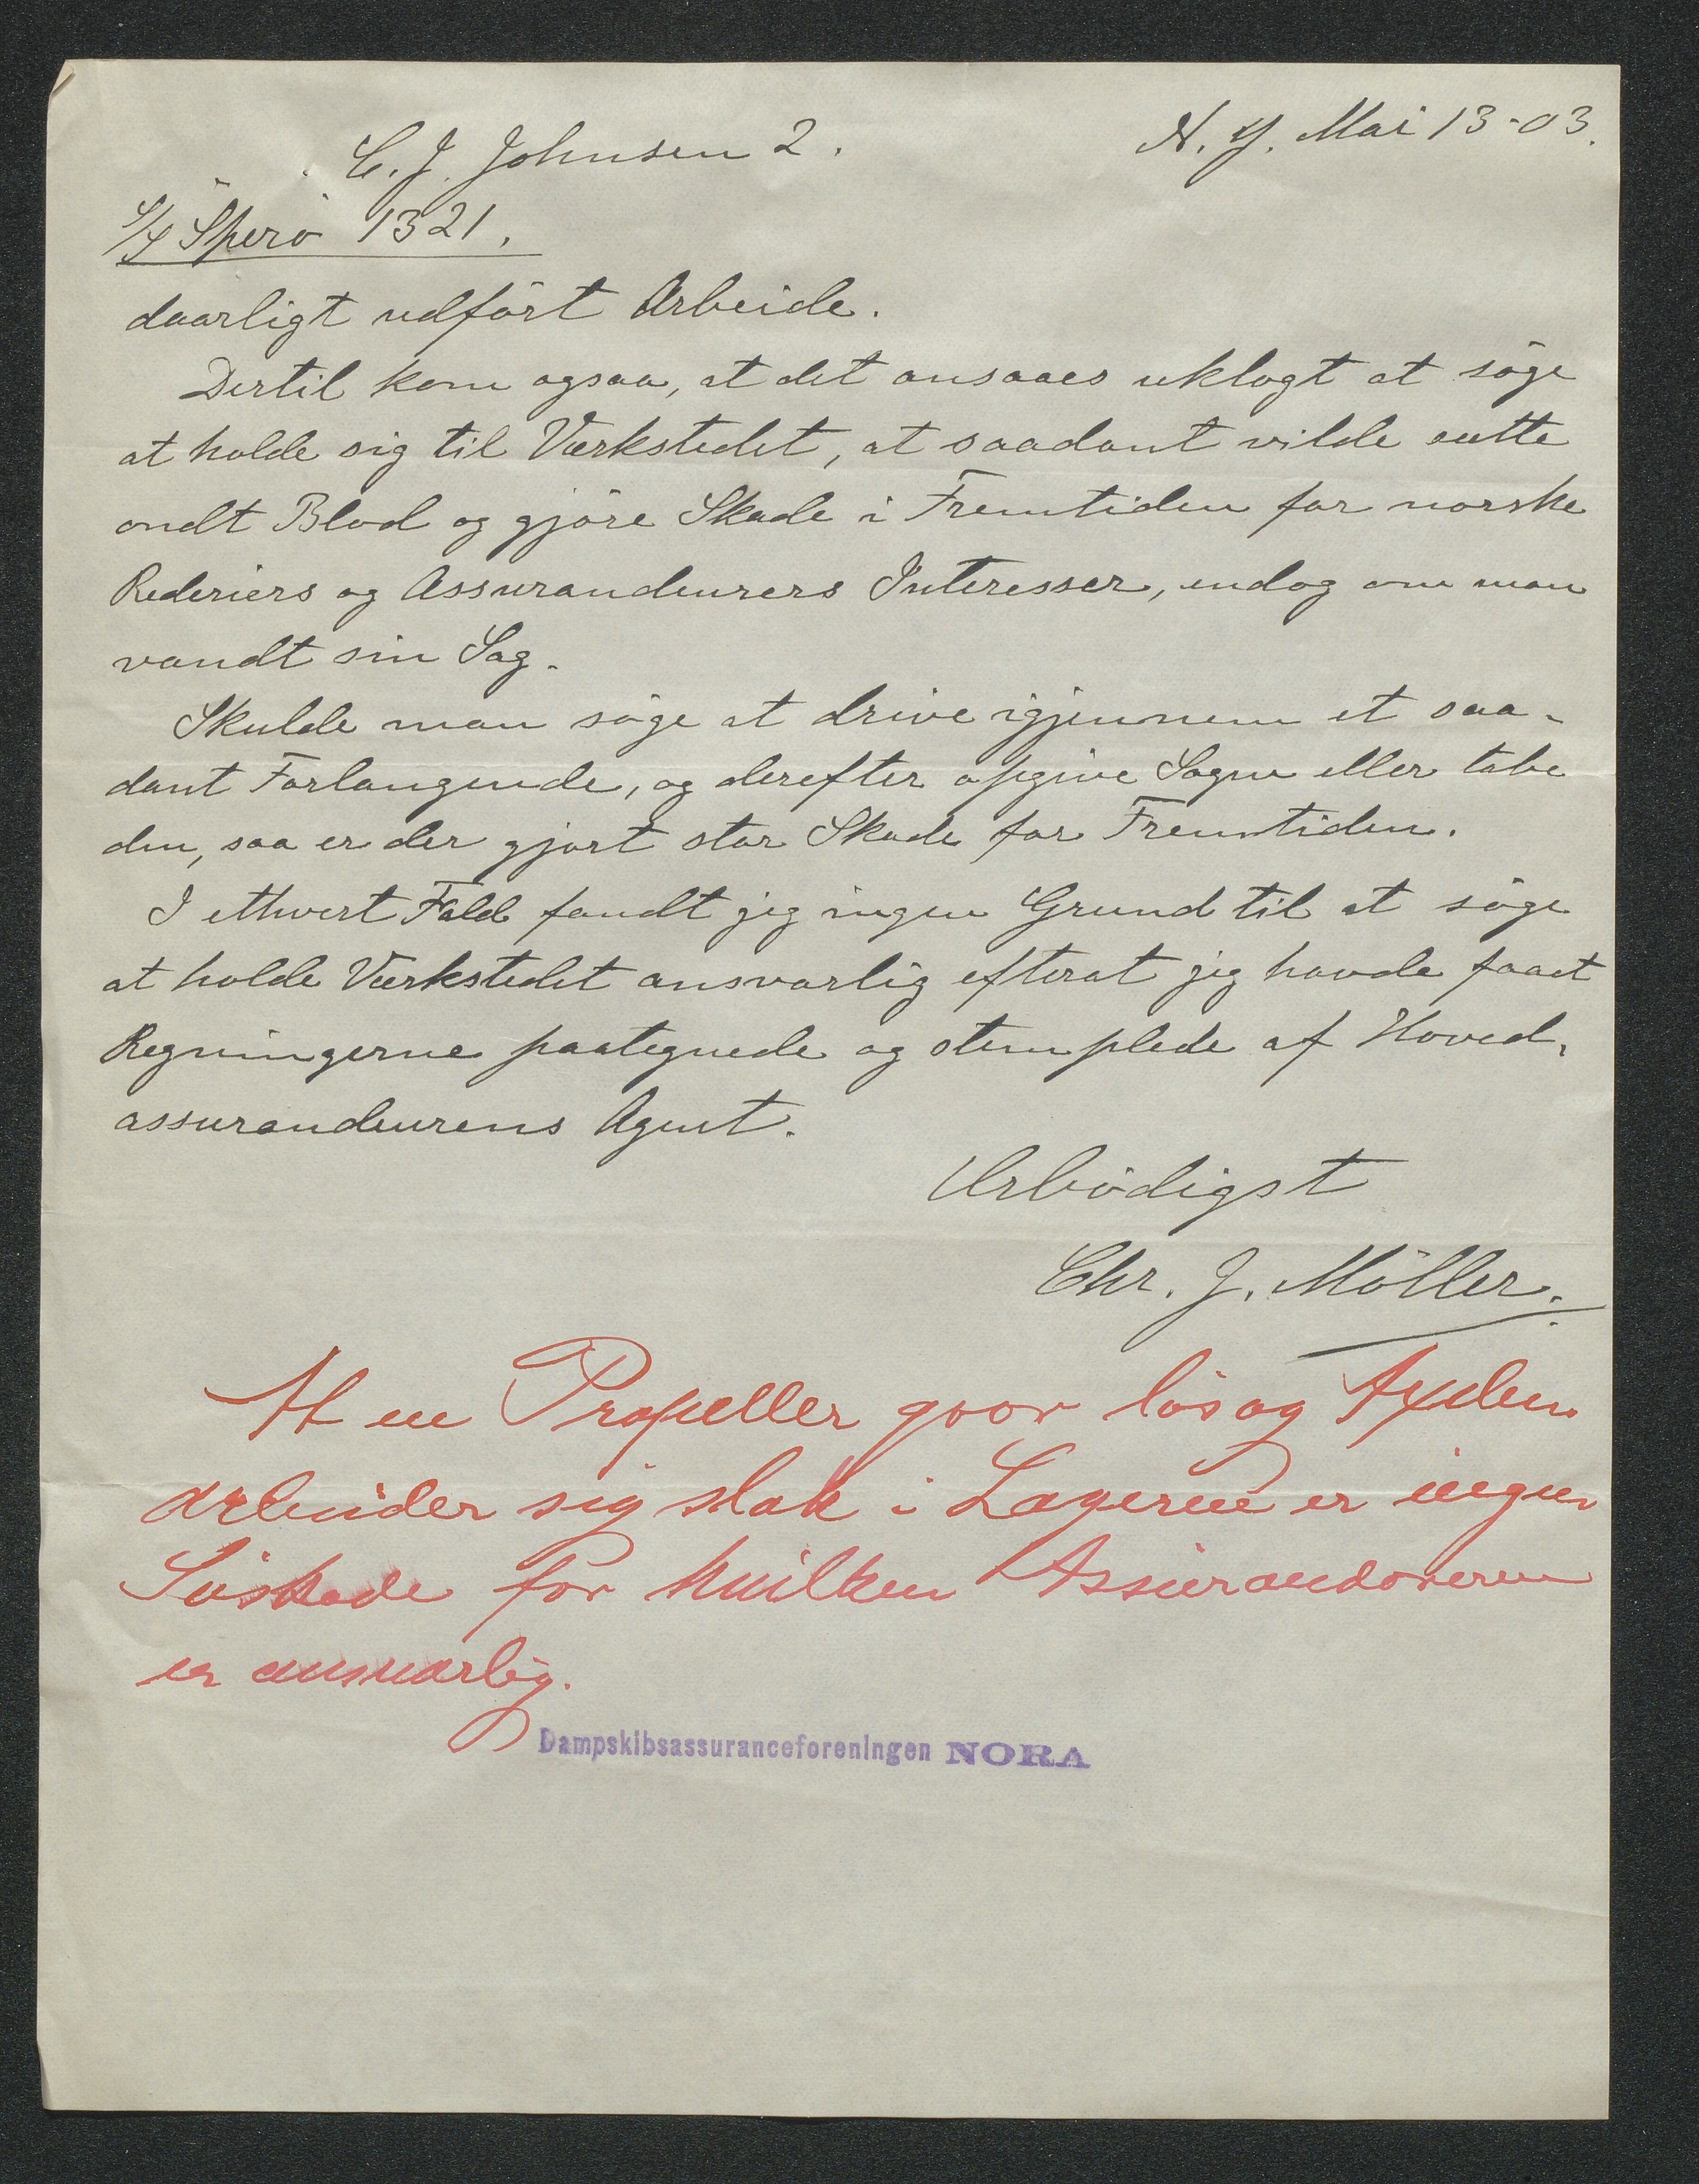 C. J. Johnsen 2.
N. Y. Mai 13-03.
S/S Sperö 1321.
daarligt udfört Arbeide.
Dertil kom ogsaa, at det ansaaes uklogt at söge
at holde sig til Værkstedet, at saadant vilde sætte
ondt Blod og gjöre Skade i Fremtiden for norske
Rederiers og Assurandeurers Interesser, endog om man
vandt sin Sag.
Skulde man söge at drive igjennem et saa-
dant Forlangende, og derefter opgive Sagen eller tabe
den, saa er der gjort stor Skade for Fremtiden.
I ethvert Fald fandt jeg ingen Grund til at söge
at holde Værkstedet ansvarlig efterat jeg havde faaet
Regningerne paategnede og stemplede af Hoved-
assurandeurens Agent.
Ærbödigst
Chr. J. Möller.
At en Propeller gaar lös og Axelen
arbeider sig slak i Lagerne er ingen
Söskade for hvilken Assurandöreren
er ansvarlig.
Dampskibsassuranceforeningen NORA